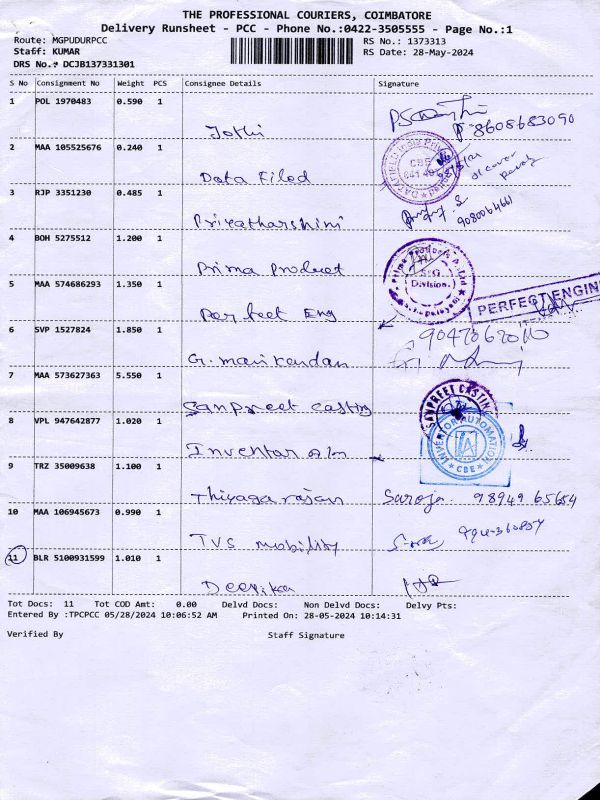 THE PROFESSIONAL COURIERS, COIMBATORE
Delivery Runsheet - PCC - Phone No.:0422-3505555 - Page No.:1
Route: MGPUDURPCC
RS No.: 1373313
Staff: KUMAR
RS Date: 28-May-2024
DRS No.: DCJB137331301
S No Consignment No Weight PCS Consignee Details Signature
1 POL 1970483 0.590 1
Jothi
P: 8608683090
2 MAA 105525676 0.240 1
Data Filed
3 RJP 3351230 0.485 1
Priyatharshini
9080064661
4 BOH 5275512 1.200 1
Prima Product
Division.
5 MAA 574686293 1.350 1
Perfect Eng
PERFECT ENGIN
6 SVP 1527824 1.850 1
G. manikandan
7 MAA 573627363 5.550 1
Sanpreet casting
SANPREET CASTING
8 VPL 947642877 1.020 1
Inventar a/n
INVENTOR AUTOMATION
CBE
9 TRZ 35009638 1.100 1
Thiyagarajan
Saroja. 98949 65654
10 MAA 106945673 0.990 1
TVS mobility
11 BLR 5100931599 1.010 1
Deepika
Tot Docs: 11 Tot COD Amt: 0.00 Delvd Docs: Non Delvd Docs: Delvy Pts:
Entered By :TPCPCC 05/28/2024 10:06:52 AM Printed On: 28-05-2024 10:14:31
Verified By Staff Signature